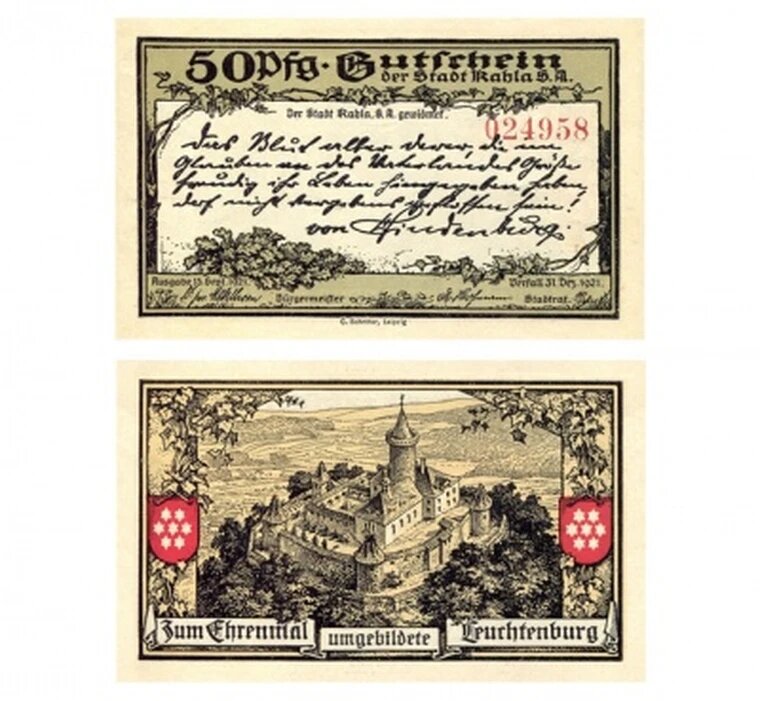 50 Pfg. Gutschein
der Stadt Kahla S.A.
Der Stadt Kahla, S.A. gewidmet.
024958
Das Blut aller derer, die im
Glauben an des Vaterlandes Größe
freudig ihr Leben hingegeben haben,
darf nicht vergebens geflossen sein!
von Hindenburg.
Ausgabe 15. Sept. 1921.
Verfall 31. Dez. 1921.
Bürgermeister
Stadtrat.
Leipzig
Zum Ehrenmal umgebildete Leuchtenburg